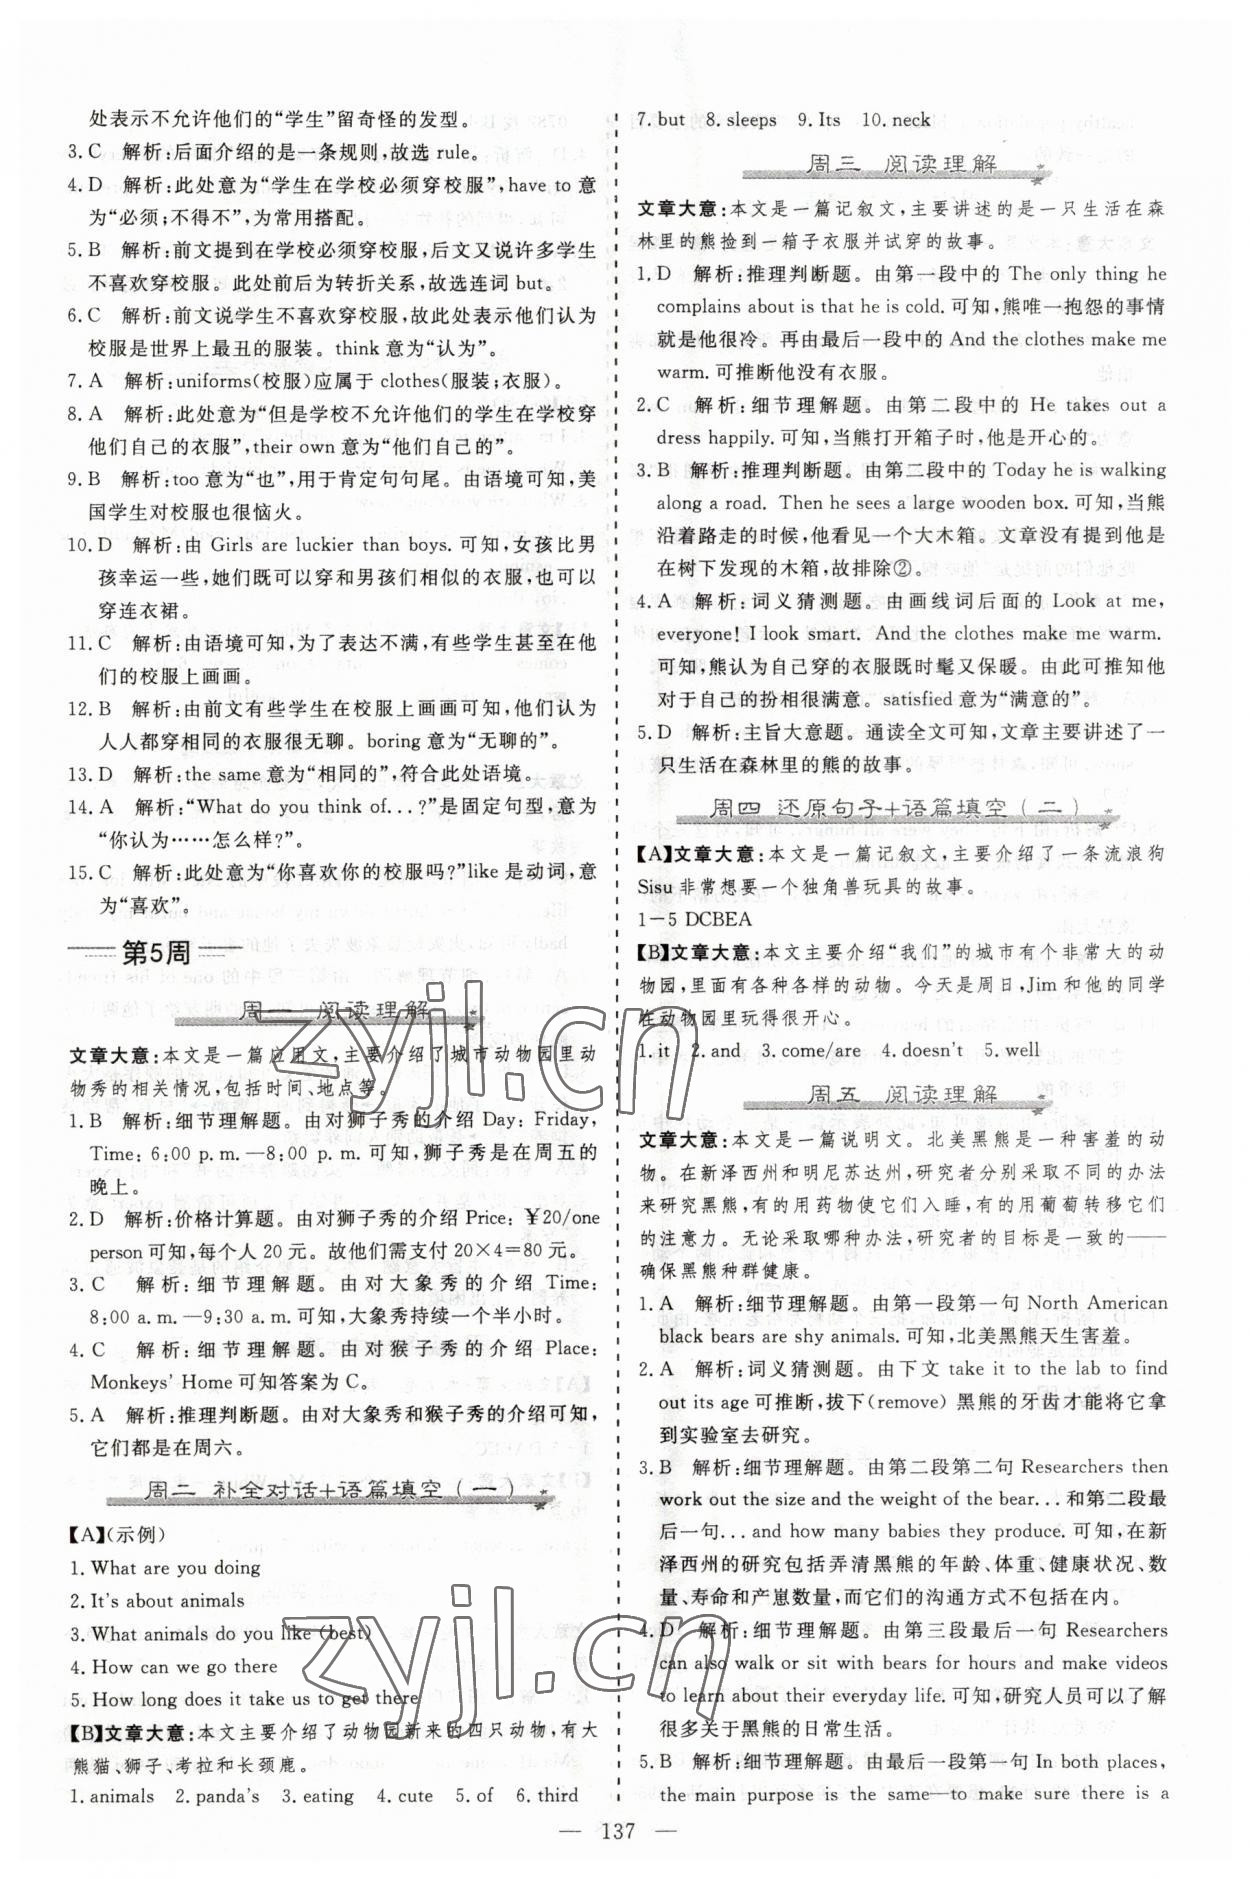 处表示不允许他们的“学生”留奇怪的发型。
3. C 解析:后面介绍的是一条规则,故选 rule。
4. D 解析:此处意为“学生在学校必须穿校服”,have to 意
为“必须;不得不”,为常用搭配。
5. B 解析:前文提到在学校必须穿校服,后文又说许多学生
不喜欢穿校服。此处前后为转折关系,故选连词 but。
6. C 解析:前文说学生不喜欢穿校服,故此处表示他们认为
校服是世界上最丑的服装。think 意为“认为”。
7. A 解析:uniforms(校服)应属于 clothes(服装;衣服)。
8. A 解析:此处意为“但是学校不允许他们的学生在学校穿
他们自己的衣服”,their own 意为“他们自己的”。
9. B 解析:too 意为“也”,用于肯定句句尾。由语境可知,美
国学生对校服也很恼火。
10. D 解析:由 Girls are luckier than boys. 可知,女孩比男
孩幸运一些,她们既可以穿和男孩们相似的衣服,也可以
穿连衣裙。
11. C 解析:由语境可知,为了表达不满,有些学生甚至在他
们的校服上画画。
12. B 解析:由前文有些学生在校服上画画可知,他们认为
人人都穿相同的衣服很无聊。boring 意为“无聊的”。
13. D 解析:the same 意为“相同的”,符合此处语境。
14. A 解析:“What do you think of...?”是固定句型,意为
“你认为……怎么样?”
15. C 解析:此处意为“你喜欢你的校服吗?”like 是动词,意
为“喜欢”。
第5周
周一 阅读理解
文章大意:本文是一篇应用文,主要介绍了城市动物园里动
物秀的相关情况,包括时间、地点等。
1. B 解析:细节理解题。由对狮子秀的介绍 Day: Friday,
Time: 6:00 p. m. —8:00 p. m. 可知,狮子秀是在周五的
晚上。
2. D 解析:价格计算题。由对狮子秀的介绍 Price: ¥20/one
person 可知,每个人 20 元。故他们需支付 20×4=80 元。
3. C 解析:细节理解题。由对大象秀的介绍 Time:
8:00 a. m. —9:30 a. m. 可知,大象秀持续一个半小时。
4. C 解析:细节理解题。由对猴子秀的介绍 Place:
Monkeys' Home 可知答案为 C。
5. A 解析:推理判断题。由对大象秀和猴子秀的介绍可知,
它们都是在周六。
周二 补全对话+语篇填空(一)
【A】(示例)
1. What are you doing
2. It's about animals
3. What animals do you like (best)
4. How can we go there
5. How long does it take us to get there
【B】文章大意:本文主要介绍了动物园新来的四只动物,有大
熊猫、狮子、考拉和长颈鹿。
1. animals 2. panda's 3. eating 4. cute 5. of 6. third
7. but 8. sleeps 9. Its 10. neck
周三 阅读理解
文章大意:本文是一篇记叙文,主要讲述的是一只生活在森
林里的熊捡到一箱子衣服并试穿的故事。
1. D 解析:推理判断题。由第一段中的 The only thing he
complains about is that he is cold. 可知,熊唯一抱怨的事情
就是他很冷。再由最后一段中的 And the clothes make me
warm. 可推断他没有衣服。
2. C 解析:细节理解题。由第二段中的 He takes out a
dress happily. 可知,当熊打开箱子时,他是开心的。
3. B 解析:推理判断题。由第二段中的 Today he is walking
along a road. Then he sees a large wooden box. 可知,当熊
沿着路走的时候,他看见一个大木箱。文章没有提到他是
在树下发现的木箱,故排除②。
4. A 解析:词义猜测题。由画线词后面的 Look at me,
everyone! I look smart. And the clothes make me warm.
可知,熊认为自己穿的衣服既时髦又保暖。由此可推知他
对于自己的扮相很满意。satisfied 意为“满意的”。
5. D 解析:主旨大意题。通读全文可知,文章主要讲述了一
只生活在森林里的熊的故事。
周四 还原句子+语篇填空(二)
【A】文章大意:本文是一篇记叙文,主要介绍了一条流浪狗
Sisu 非常想要一个独角兽玩具的故事。
1－5 DCBEA
【B】文章大意:本文主要介绍“我们”的城市有个非常大的动
物园,里面有各种各样的动物。今天是周日,Jim 和他的同学
在动物园里玩得很开心。
1. it 2. and 3. come/are 4. doesn't 5. well
周五 阅读理解
文章大意:本文是一篇说明文。北美黑熊是一种害羞的动
物。在新泽西州和明尼苏达州,研究者分别采取不同的办法
来研究黑熊,有的用药物使它们入睡,有的用葡萄转移它们
的注意力。无论采取哪种办法,研究者的目标是一致的——
确保黑熊种群健康。
1. A 解析:细节理解题。由第一段第一句 North American
black bears are shy animals. 可知,北美黑熊天生害羞。
2. A 解析:词义猜测题。由下文 take it to the lab to find
out its age 可推断,拔下(remove) 黑熊的牙齿才能将它拿
到实验室去研究。
3. B 解析:细节理解题。由第二段第二句 Researchers then
work out the size and the weight of the bear... 和第二段最
后一句... and how many babies they produce. 可知,在新
泽西州的研究包括弄清黑熊的年龄、体重、健康状况、数
量、寿命和产崽数量,而它们的沟通方式不包括在内。
4. D 解析:细节理解题。由第三段最后一句 Researchers
can also walk or sit with bears for hours and make videos
to learn about their everyday life. 可知,研究人员可以了解
很多关于黑熊的日常生活。
5. B 解析:细节理解题。由最后一段第一句 In both places,
the main purpose is the same—to make sure there is a
— 137 —
zyjl.cn
zyjl.cn